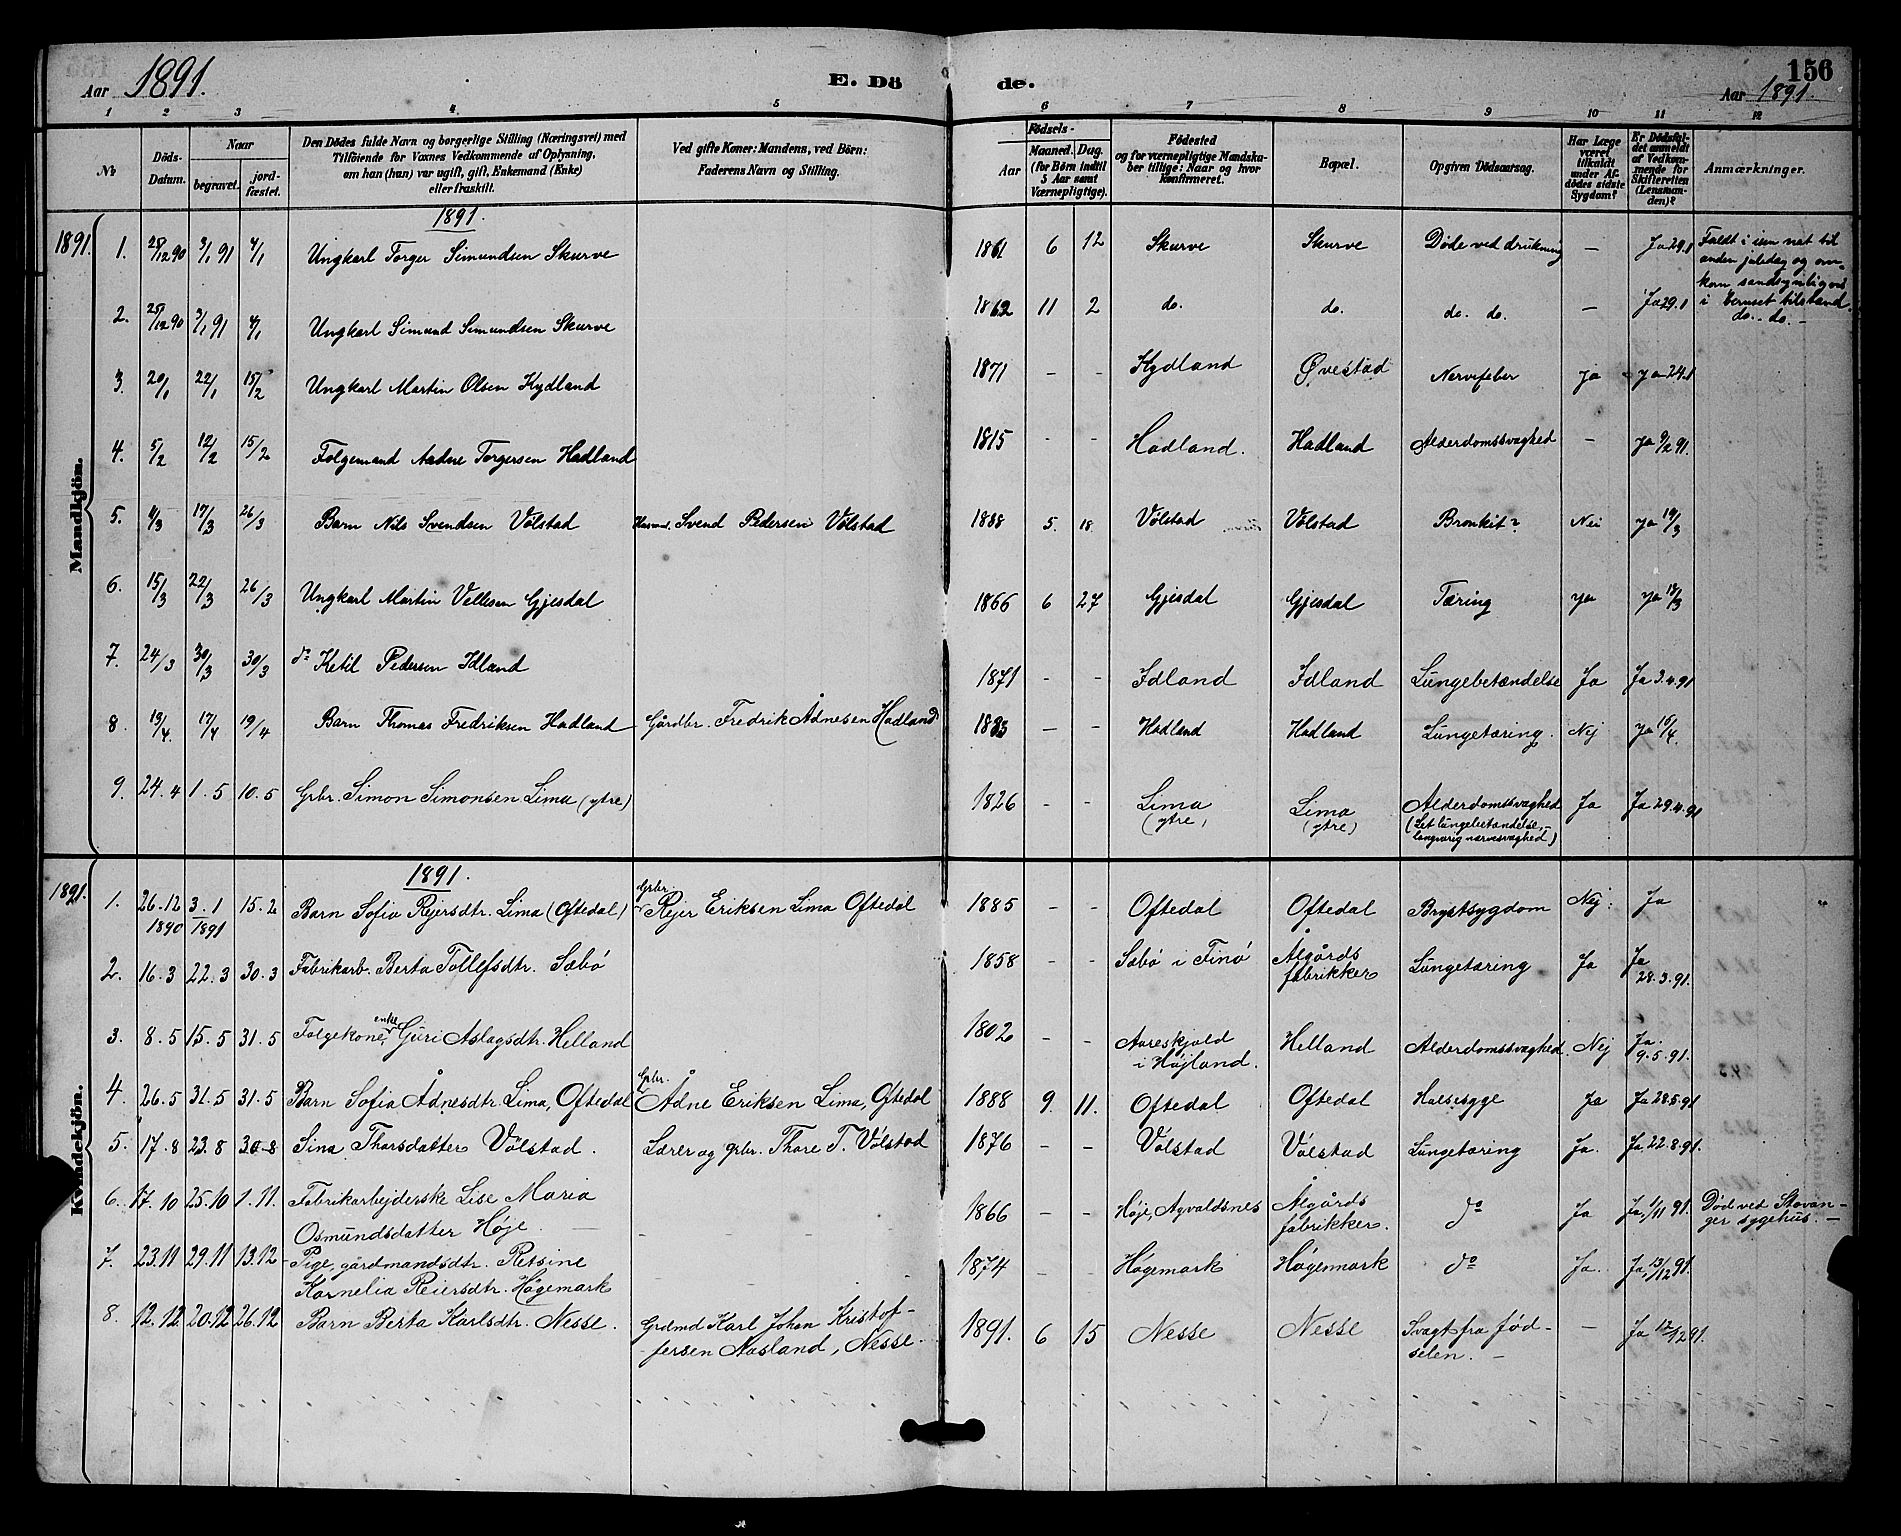 Aar 1891. E. Dö de. 156
Aar 1891.
1 2 3 4 5 6 7 8 9 10 11 12
№ Döds-Datum. Naar begravet. jordfæstet. Den Dödes fulde Navn og borgerlige Stilling (Næringsvei) med Tilföiende for Voxnes Vedkommende af Oplysning, om han (hun) var ugift, gift, Enkemand (Enke) eller fraskilt. Ved gifte Koner: Mandens, ved Börn: Faderens Navn og Stilling. Födsels- Aar Maaned. Dag. (for Börn indtil 5 Aar samt Værnepligtige). Födested og for værnepligtige Mandskaber tillige: Naar og hvor konfirmeret. Bopæl. Opgiven Dödsaarsag. Har Læge været tilkaldt under Afdödes sidste Sygdom? Er Dödsfaldet anmeldt af Vedkommende for Skifteretten (Lensmanden)? Anmærkninger.
Mandkjön.
1891.
1891. 1. 25/12 90 3/1 91 4/1 Ungkarl Torger Simundsen Skurve 1861 6 12 Skurve Skurve Døde ved drukning – Ja 29.1 Faldt i isen nat til
anden juledag og om-
kom sandsynligvis
i beruset tilstand.
2. 25/12 90 3/1 91 4/1 Ungkarl Simund Simundsen Skurve 1862 11 2 do. do. do. do. – Ja 29.1 do. do. –
3. 20/1 22/1 15/2 Ungkarl Martin Olsen Kydland 1871 – – Kydland Øvestad Nervefeber Ja Ja 24.1
4. 5/2 12/2 15/2 Folgemand Aadne Torgersen Hadland 1815 – – Hadland. Hadland Alderdomssvaghed – Ja 9/2 91.
5. 11/3 17/3 26/3 Barn Nils Svendsen Vølstad Svend Pedersen Vølstad 1888 5. 18. Vølstad Vølstad Bronkit? Nei Ja 19/3
6. 15/3 22/3 26/3 Ungkarl Martin Vellesen Gjesdal 1866 6 27 Gjesdal Gjesdal Tæring Ja Ja 18/3
7. 24/3 30/3 30/3 do Ketil Pedersen Idland 1871 – – Idland Idland Lungebetændelse Ja Ja 3.4.91
8 13/4. 17/4 19/4 Barn Thomas Fredriksen Hadland Gårdbr. Fredrik Ådnesen Hadland 1883 – – Hadland Hadland Lungetæring. Nej Ja 15/4.
9. 24.4 1.5 10.5 Grbr. Simon Simonsen Lima (ytre) 1826 – – Lima (ytre) Lima (ytre) Alderdomssvaghed
(Let lungebetændelse,–
langvarig nervesvaghed) Ja Ja 29.4.91
Kvindekjön.
1891.
1891. 1. 26.12 1890 3.1 1891 15.2 Barn Sofia Rejersdtr. Lima (Oftedal) Grbr. Rejer Eriksen Lima Oftedal 1885 – – Oftedal Oftedal Brystsygdom Nej. Ja
2. 16.3 22.3 30.3 Fabrikarb. Berta Tollefsdtr. Sæbø 1858 – – Sæbø i Finø Ålgårds fabrikker Lungetæring Ja Ja 28.3.91.
3. 8.5 15.5 31.5 Folgekone, enke Guri Aslagsdtr. Helland 1802 – – Aareskjold i Højland. Helland Alderdomssvaghed. Nej Ja. 9.5.91.
4. 26.5 31.5 31.5 Barn Sofia Ådnesdtr. Lima, Oftedal Grbr. Ådne Eriksen Lima, Oftedal 1888 9. 11. Oftedal Oftedal Halssyge Ja Ja 28.5.91
5. 17.8 23.8 30.8 Sina Thorsdatter Vølstad. Lærer og grbr. Thore T. Vølstad 1876 – – Vølstad Vølstad Lungetæring Ja. Ja, 22.8.91.
6. 17.10 25.10 1.11. Fabrikarbejderske Lise Maria
Osmundsdatter Høje. – – – 1866 – – Høje, Agvaldsnes Ålgårds fabrikker. do Ja Ja, 1/11 91. Død ved Stavan-
ger sygehus. –
7. 23.11 29.11 13.12 Pige, gårdmandsdtr. Retsine
Kornelia Reiersdtr. Høgemark – – – 1874 – – Høgemark Høgemark do Ja. Ja, 13/12 91.
8. 12.12 20.12 26.12 Barn Berta Karlsdtr. Nesse. Grdmd Karl Johan Kristof-
fersen Aasland, Nesse. 1891. 6 15 Nesse Nesse Svagt fra fød-
selen. – – Ja 17/12 91.